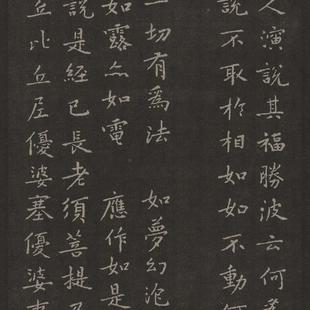 人演說其福勝彼云何為
說不取於相如如不動何
一切有為法 如夢幻泡
如露亦如電 應作如是
說是經已長老須菩提及
丘比丘尼優婆塞優婆夷